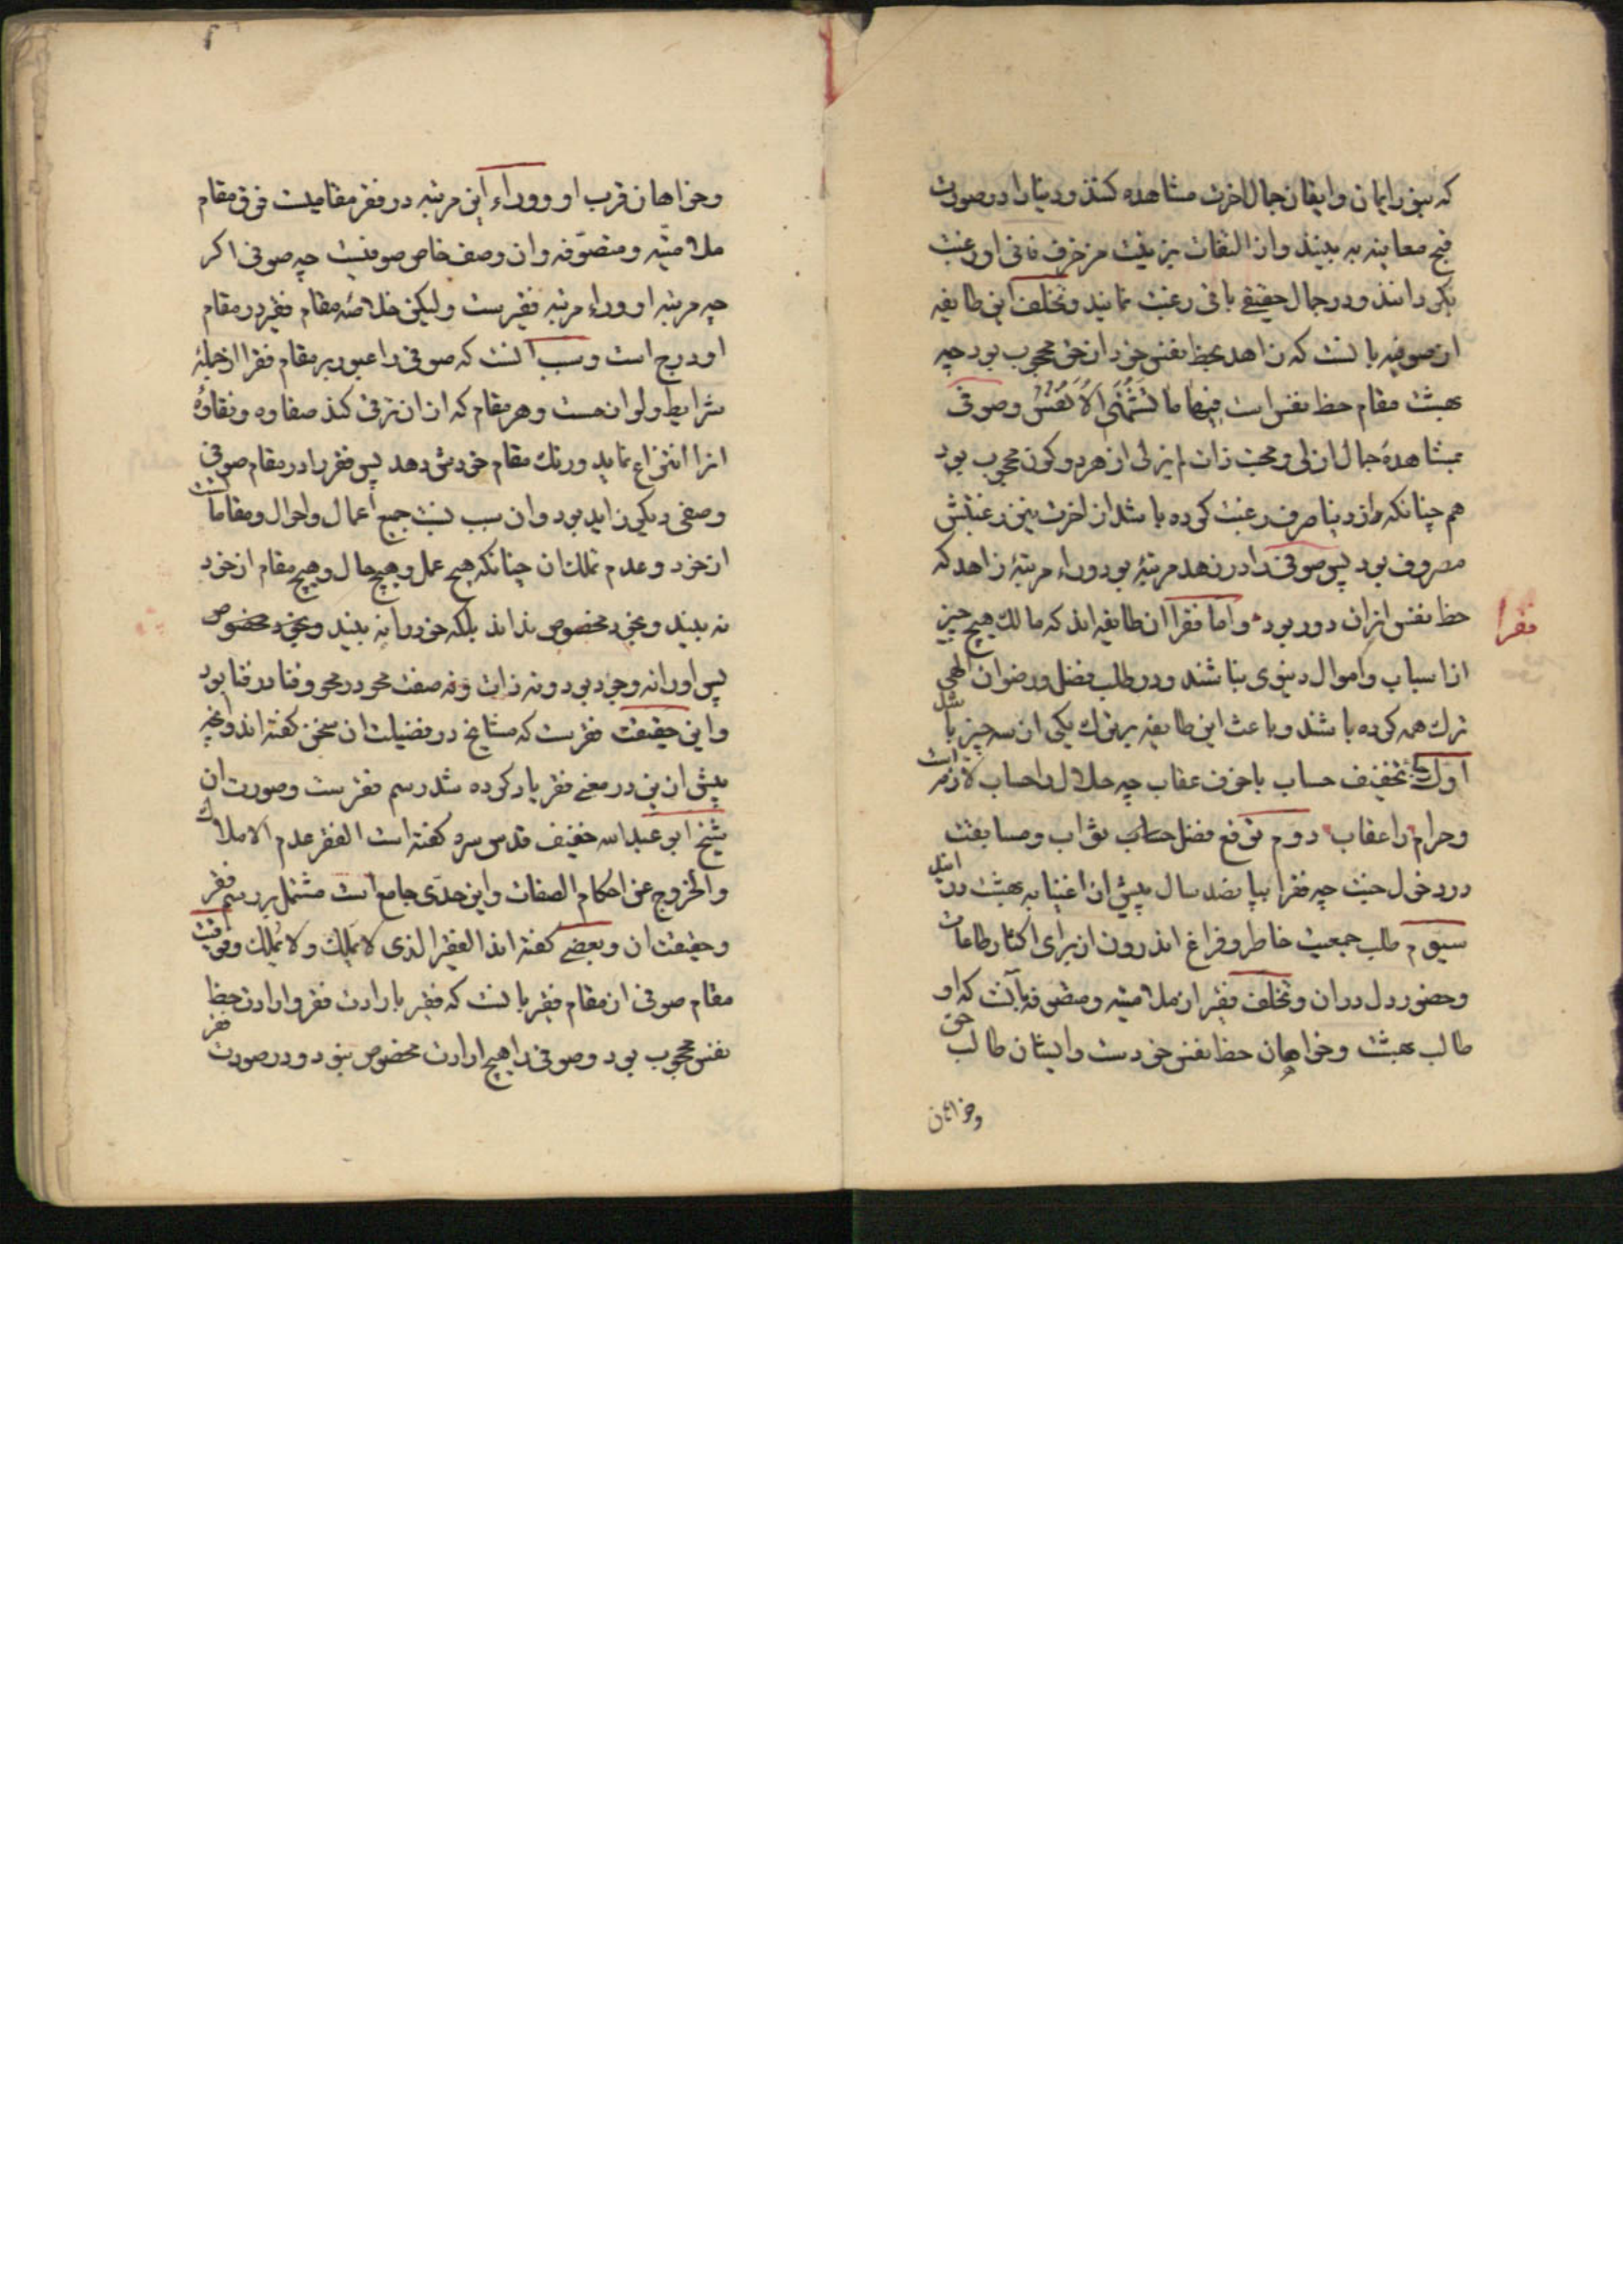 که بنور ایمان و ایقان جمال اخرت مشاهده کنند و دنیا را در صورت
قبح معاینه به بینند و از التفات بزینت مزخرف فانی او رغبت
بگردانند و در جمال حقیقی باقی رغبت نمایند و تخلف این طایفه
از صوفیه بانست که زاهد بحظ نفس خود از حق محجوب بود چه
بهشت مقام حظ نفس است فِیهَا مَا تَشْتَهِی الْاَنْفُسُ و صوفی
بمشاهدهٔ جمال ازلی و محبت ذات لم یزلی از هر دو کون محجوب بود
هم چنانکه از دنیا صرف رغبت کرده باشد از اخرت نیز رغبتش
مصروف بود پس صوفی را در زهد مرتبهٔ بود وراء مرتبهٔ زاهد که
حظ نفس ازان دور بود و اما فقرا ان طایفه اند که مالک هیچ چیز
فقرا
از اسباب و اموال دنیوی نباشند و در طلب فضل و رضوان الهی
ترک همه کرده باشند و باعث این طایفه بر ترک یکی از سه چیز باشد
اول تخفیف حساب یا خوف عقاب چه حلال را حساب لازمست
و حرام را عقاب دوم توقع فضل ثواب و مسابقت
در دخول جنت چه فقرا بپانصد سال پیش از اغنیا به بهشت در ایند
سیوم طلب جمعیت خاطر و فراغ اندرون از برای اکثار طاعات
و حضور دل دران و تخلف فقیر از ملامتیه و متصوفه بآنست که او
طالب بهشت و خواهان حظ نفس خودست و ایشان طالب حق
وخواهان
وخواهان قرب او و وراء این مرتبه در فقر مقامیست فوق مقام
ملامتیّه و متصوّفه و ان وصف خاص صوفیست چه صوفی اگر
چه مرتبه او وراء مرتبه فقیرست ولیکن خلاصهٔ مقام فقر در مقام
او درج است و سبب انست که صوفی را عبور بر مقام فقر از جملهٔ
شرایط و لوازمست و هر مقام که ازان ترقی کند صفاوه و نقاوهٔ
انرا انتزاع نماید و رنک مقام خودش دهد پس فقر را در مقام صوفی
وصفی دیکر زاید بود و ان سلب نسبت جمیع اعمال و احوال و مقاماتست
از خود و عدم تملک ان چنانکه هیچ عمل و هیچ حال و هیچ مقام از خود
نه بیند و بخود مخصوص نداند بلکه خود را نه بیند و بخود مخصوص
پس او را نه وجود بود و نه ذات و نه صفت محو در محو و فنا در فنا بود
و این حقیقت فقرست که مشایخ در فضیلت ان سخن گفته اند و انچه
پیش ازین در معنی فقر یاد کرده شد رسم فقرست و صورت ان
شیخ ابو عبدالله خفیف قدس سره گفته است الفقر عدم الاملاک
والخروج عن احکام الصفات و این حدّی جامع است مشتمل بر رسم فقر
و حقیقت ان و بعضی گفته اند الفقیر الذی لا یَملِک ولا یُملَک و فوقیت
مقام صوفی از مقام فقیر بانست که فقیر بارادت فقر و ارادت حظ
نفس محجوب بود و صوفی را هیچ ارادت مخصوص نبود و در صورت فقر